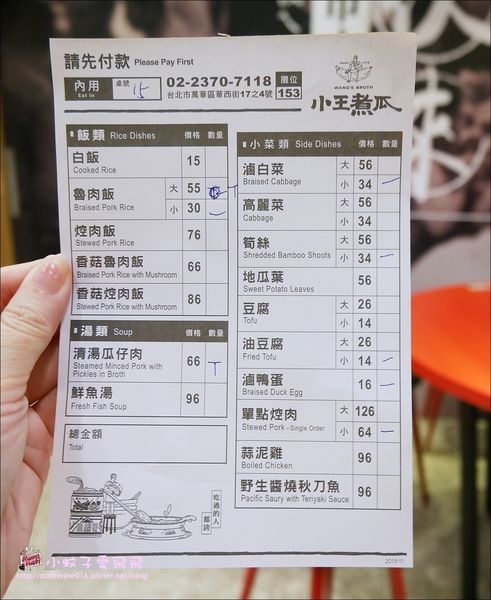 請先付款 Please Pay First
內用 Eat in 桌號 15
02-2370-7118 攤位 153
台北市萬華區華西街17之4號
SINCE 1975
WANG'S BROTH
小王煮瓜
飯類 Rice Dishes 價格 數量
白飯 15
Cooked Rice
魯肉飯 大 55
Braised Pork Rice 小 30
焢肉飯 76
Stewed Pork Rice
香菇魯肉飯 66
Braised Pork Rice with Mushroom
香菇焢肉飯 86
Stewed Pork Rice with Mushroom
湯類 Soup 價格 數量
清湯瓜仔肉 66 T
Steamed Minced Pork with
Pickles in Broth
鮮魚湯 96
Fresh Fish Soup
總金額
Total
吃過的人
都誇
小菜類 Side Dishes 價格 數量
滷白菜 大 56
Braised Cabbage 小 34 一
高麗菜 大 56
Cabbage 小 34
筍絲 大 56
Shredded Bamboo Shoots 小 34 一
地瓜葉 56
Sweet Potato Leaves
豆腐 大 26
Tofu 小 14
油豆腐 大 26
Fried Tofu 小 14 一
滷鴨蛋 16 一
Braised Duck Egg
單點焢肉 大 126
Stewed Pork-Single Order 小 64 一
蒜泥雞 96
Boiled Chicken
野生醬燒秋刀魚 96
Pacific Saury with Teriyaki Sauce
2019.11
小蚊子愛飛飛
http://catherine016.pixnet.net/blog